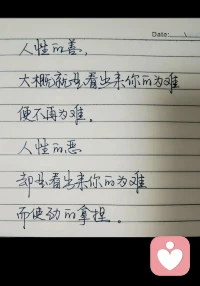 Date:
人性的善，
大概就是看出来你的为难
便不再为难。
人性的恶
却是看出来你的为难
而使劲的拿捏。